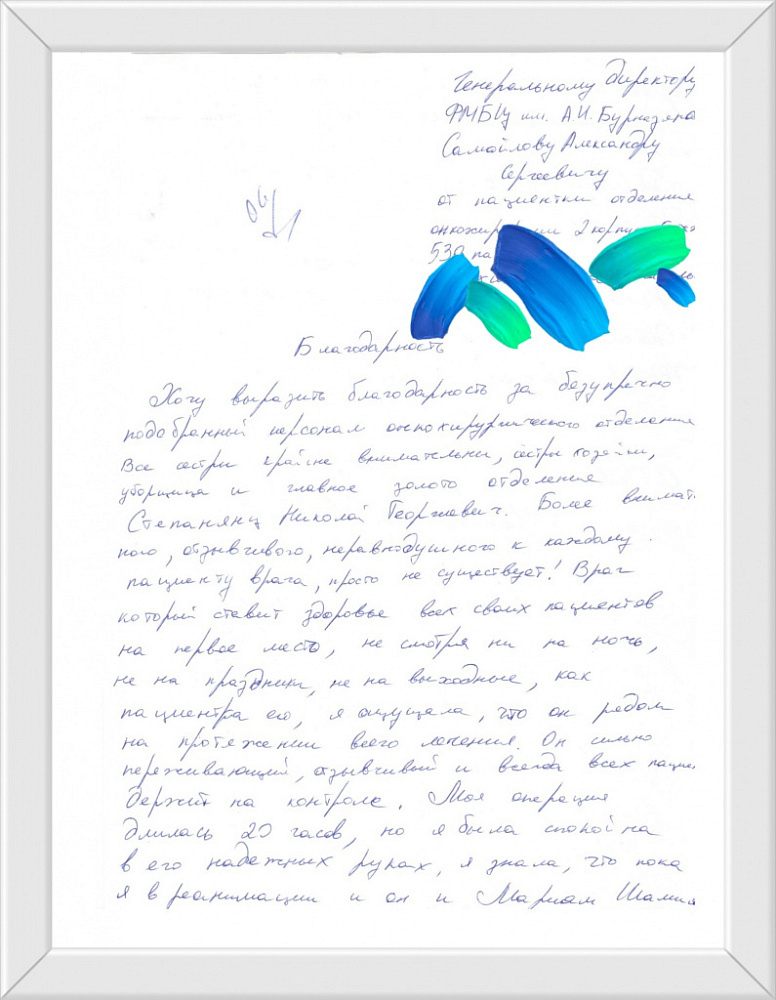 Генеральному директору
ФМБЦ им. А.И. Бурназяна
Самойлову Александру
Сергеевичу
от пациентки отделения
2 корпус
539 па
Благодарность
Хочу выразить благодарность за безупречно
подобранный персонал онкохирургического отделения
Все сестры крайне внимательны, сестры хозяйки,
уборщица и главное золото отделения
Степанянц Николай Георгиевич. Более внимат.
ного, отзывчивого, неравнодушного к каждому
пациенту врача, просто не существует! Врач
который ставит здоровье всех своих пациентов
на первое место, не смотря ни на ночь,
не на праздники, не на выходные, как
пациентка его, я ощущала, что он рядом
на протяжении всего лечения. Он сильно
переживающий, отзывчивый и всегда всех пацие
держит на контроле. Моя операция
длилась 20 часов, но я была спокойна
в его надежных руках, я знала, что пока
я в реанимации и он и Мариам Шамил